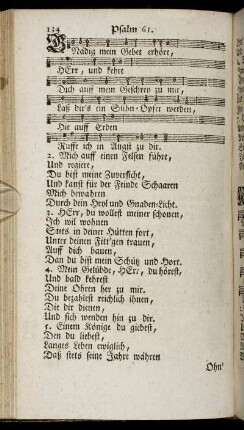 134 Psalm 61.
GNädig mein Gebet erhöre,
HErr, und kehre
Dich auff mein Geschrey zu mir,
Laß dir's ein Sühn-Opfer werden,
Hie auff Erden
Ruffe ich in Angst zu dir.
2. Mich auff einen Felsen führe,
Und regiere,
Du bist meine Zuversicht,
Und kanst für der Feinde Schaaren
Mich bewahren
Durch dein Heyl und Gnaden-Licht.
3. HErr, du wollest meiner schonen,
Ich wil wohnen
Stets in deiner Hütten fort,
Unter deinen Fitt'gen trauen,
Auff dich bauen,
Dan du bist mein Schutz und Hort.
4. Mein Gelübde, HErr, du hörest,
Und bald kehrest
Deine Ohren her zu mir.
Du bezahlest reichlich ihnen,
Die dir dienen,
Und sich wenden hin zu dir.
5. Einem Könige du giebest,
Den du liebest,
Langes Leben ewiglich,
Daß stets seine Jahre währen
Ohn'